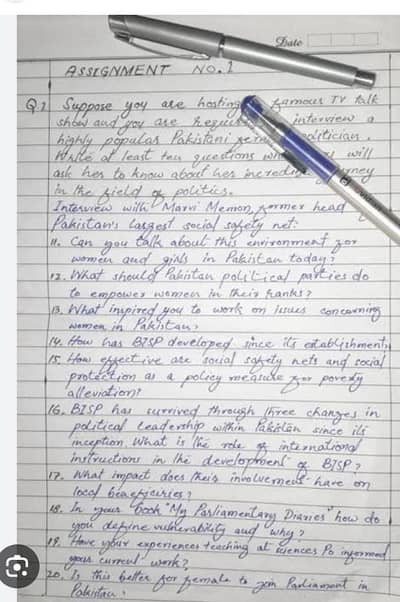 Date
ASSIGNMENT NO.1
Q1 Suppose you are hosting famous TV talk
show and you are interview a
highly popular Pakistani politician.
Write at least ten questions will
ask her to know about her
in the field of politics.
Interview with Marvi Memon, former head
Pakistan's largest social safety net:
11. Can you talk about this environment for
women and girls in Pakistan today?
12. What should Pakistan political parties do
to empower women in their ranks?
13. What inpired you to work on issues concerning
women in Pakistan?
14. How has BISP developed since its establishment
15. How effective are social safety nets and social
protection as a policy measure for poverty
alleviation?
16. BISP has survived through three changes in
political leadership within Pakistan since its
inception. What is the role of international
instructions in the development of BISP?
17. What impact does their involvement have on
local
18. In your book "My Parliamentary Diaries" how do
you define vulnerability and why?
19. Have your experiences teaching at sciences Po informed
your current work?
20. Is this better for female to join Parliament in
Pakistan.